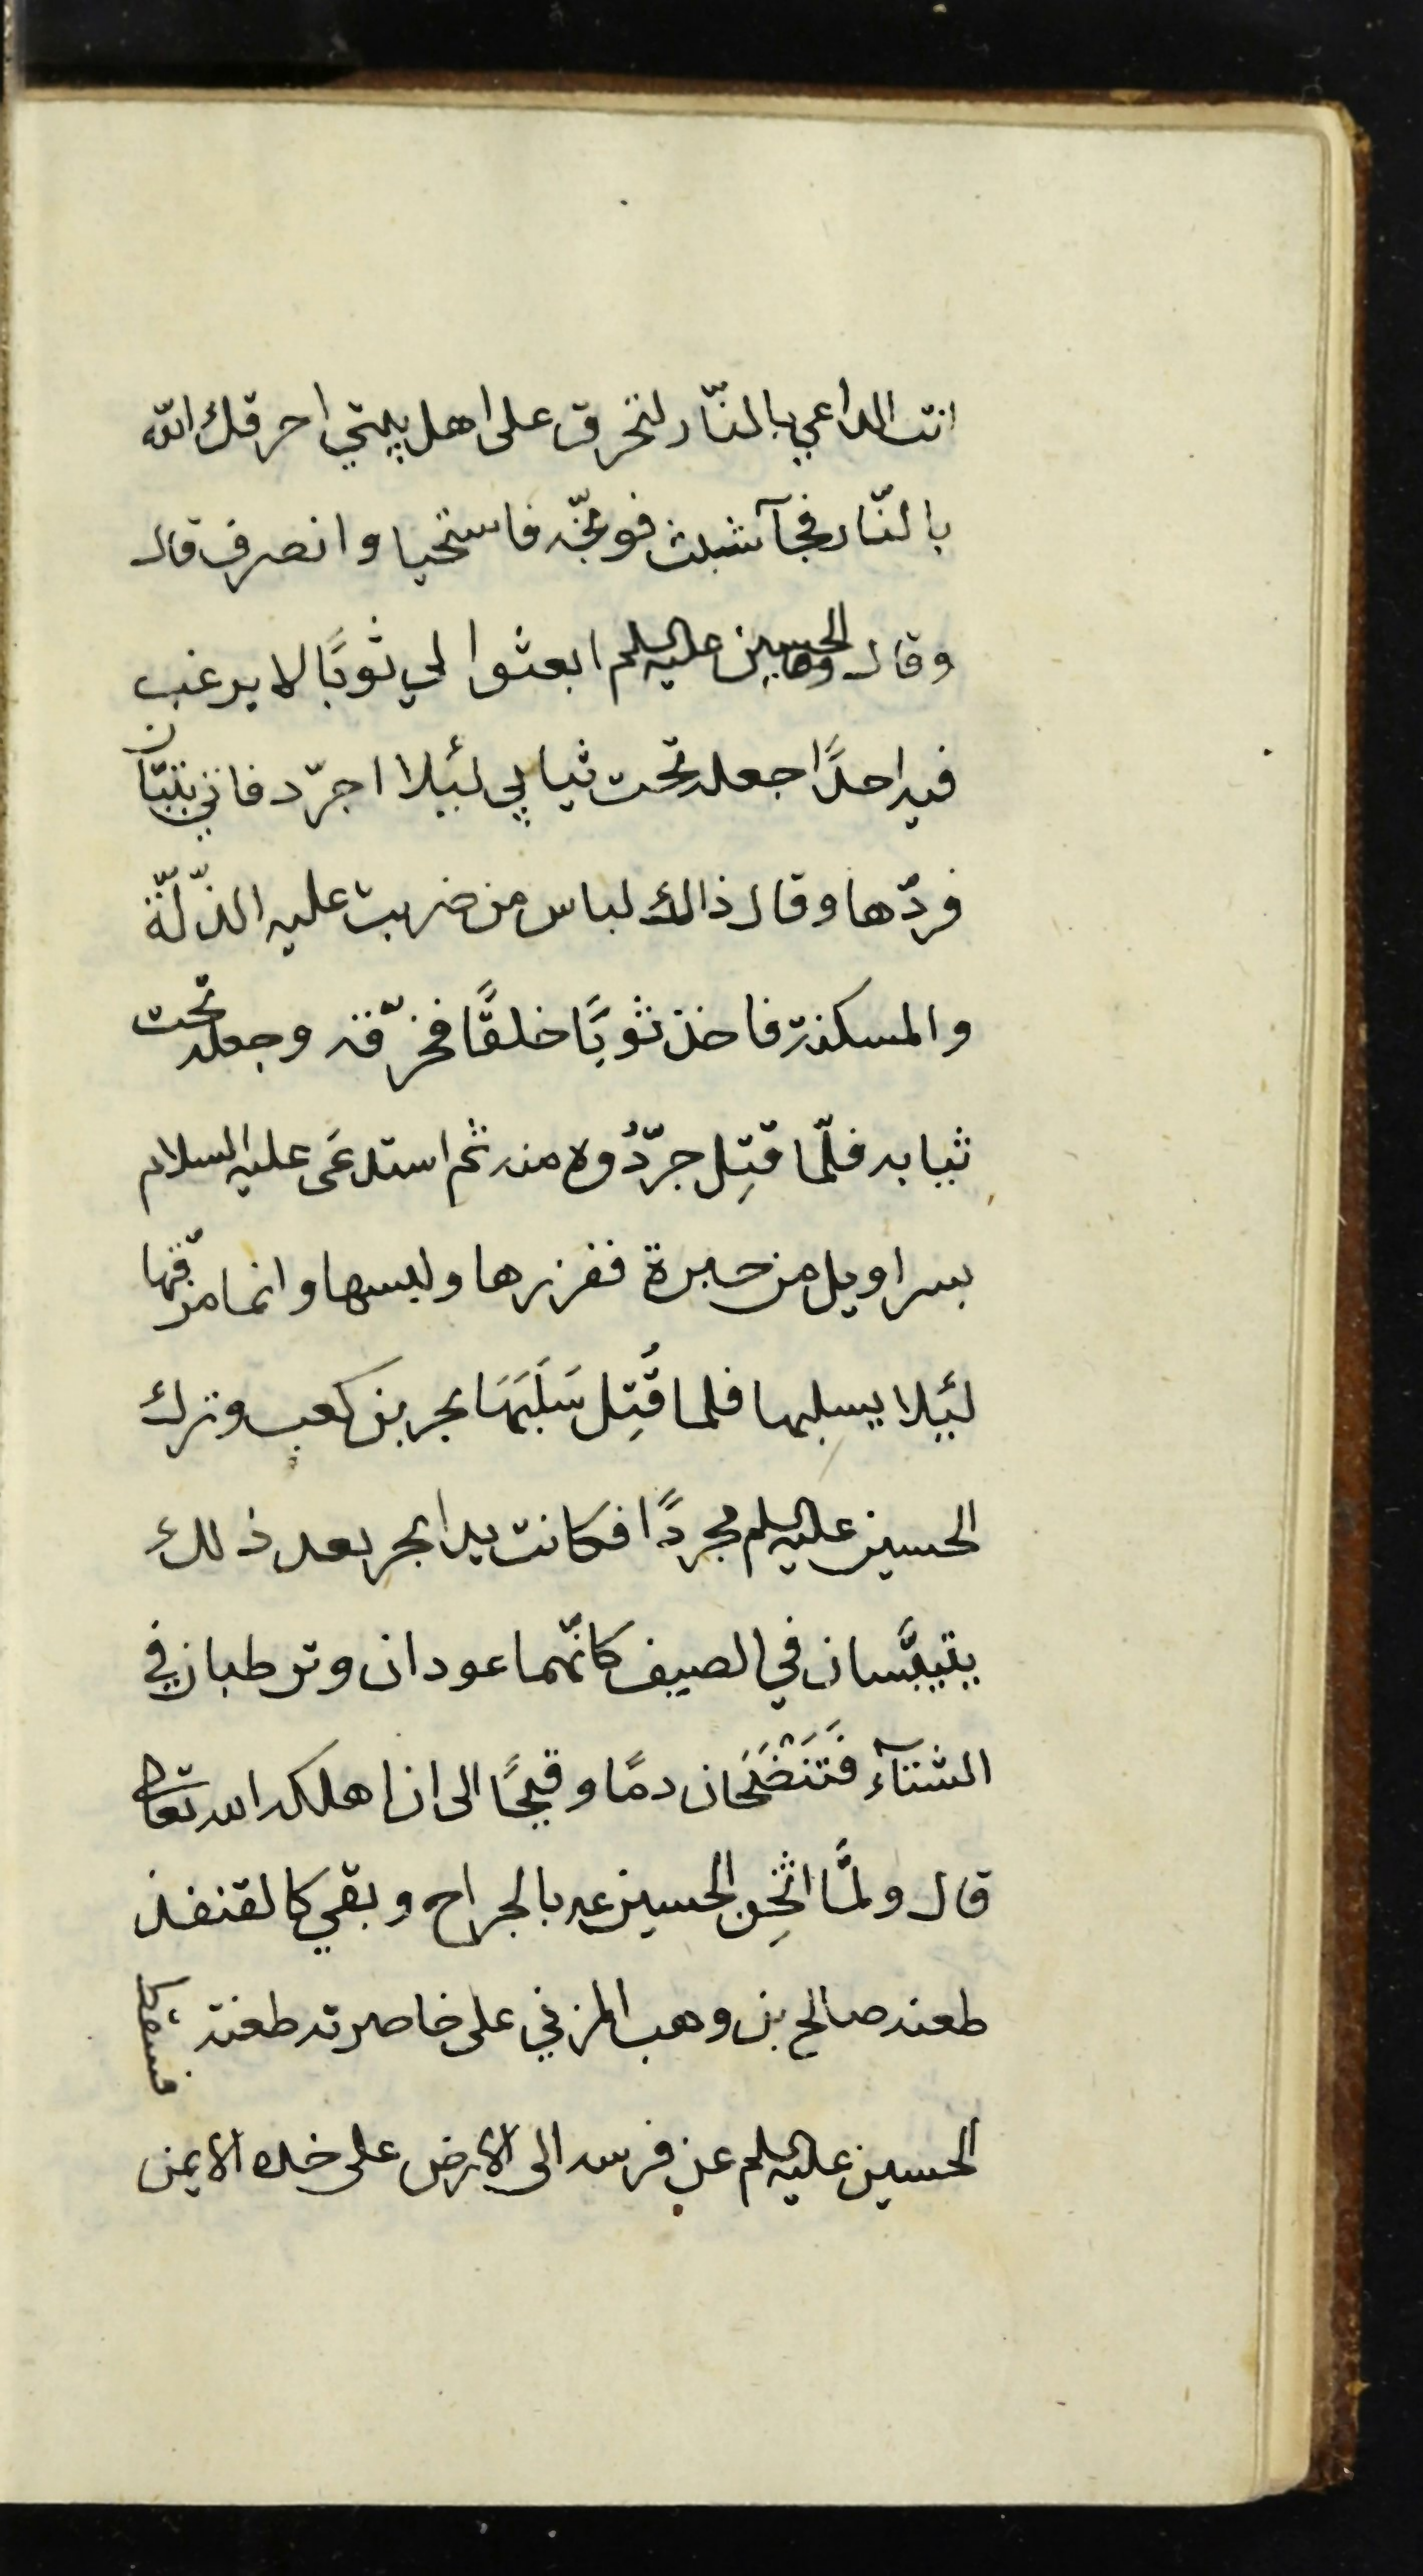 انت الداعي بالنّار لتحرق على اهل بيتي احرقك الله
بالنّار فجآ شبث فوبّخه فاستحيا وانصرف قال
وقال الحسين عليه السلم ابعثوا لي ثوبًا لا يرغب
فيه احدًا اجعله تحت ثيابي لئيلا اجرّد فاتي بتبّان
فردّها وقال ذالك لباس من ضربت عليه الذّلّة
والمسكنة فاخذ ثوبًا خلقًا فخرّقه وجعله تحت
ثيابه فلّما قتِل جرّدُوه منه ثم استدعَى عليه السلام
بسراويل من حبرة ففزرها ولبسها وانما مزّقها
لئيلا يسلبها فلما قُتِل سَلَبَهَا بحر بن كعب وترك
الحسين عليه السلم مجردًا فكانت يدا بحر بعد ذلك
يتيبَّسان في الصيف كانّهما عودان وترطبان في
الشتآء فَتَنْضَحَان دمًا وقيحًا الى ان اهلكه الله تعالى
قال ولمَّا اثخِن الحسين عيه بالجراح وبقي كالقنفذ
طعنه صالح بن وهب المزني على خاصرته طعنة فسقط
الحسين عليه السلم عن فرسه الى الارض على خده الايمن